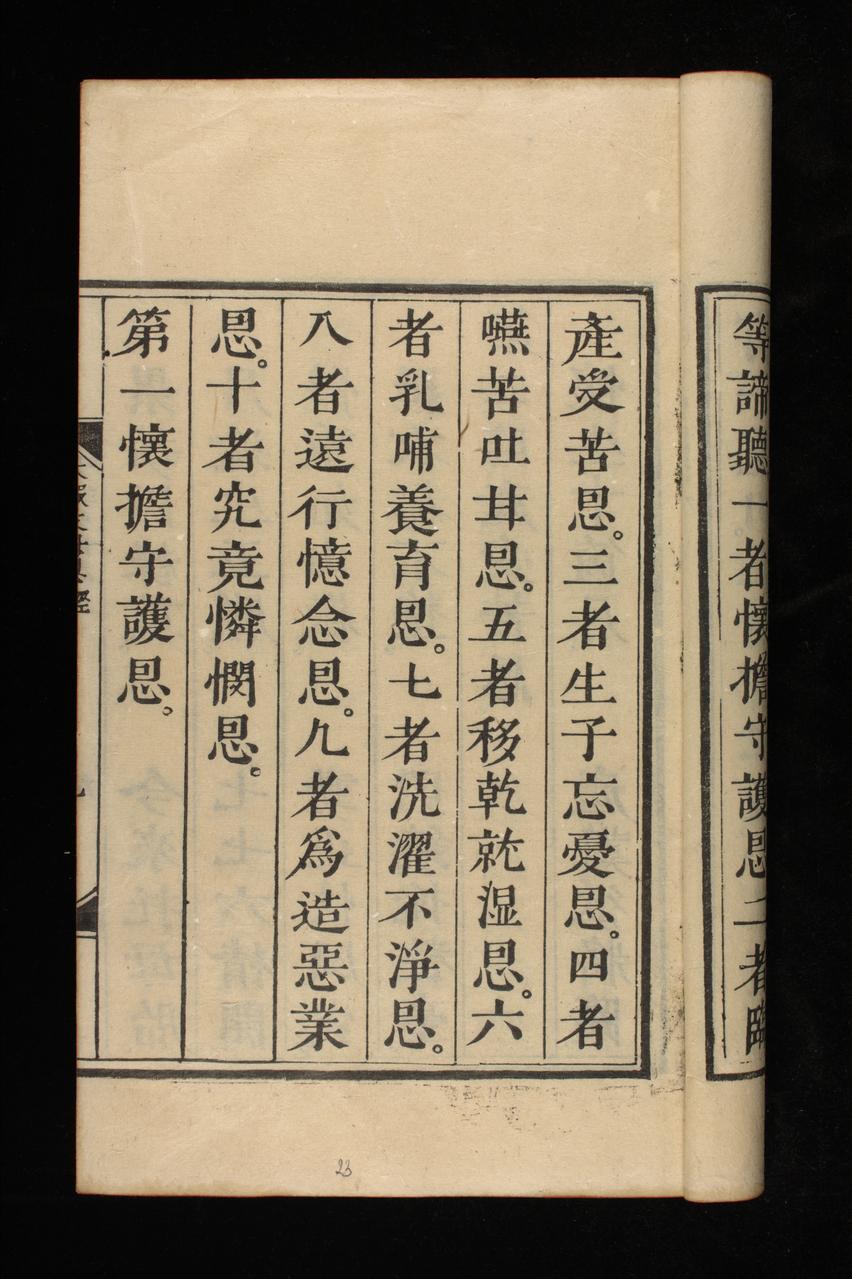 等諦聽一者懷擔守護恩二者臨
產受苦恩。三者生子忘憂恩。四者
嚥苦吐甘恩。五者移乾就湿恩。六
者乳哺養育恩。七者洗濯不淨恩。
八者遠行憶念恩。九者爲造惡業
恩。十者究竟憐憫恩。
第一懷擔守護恩。
23